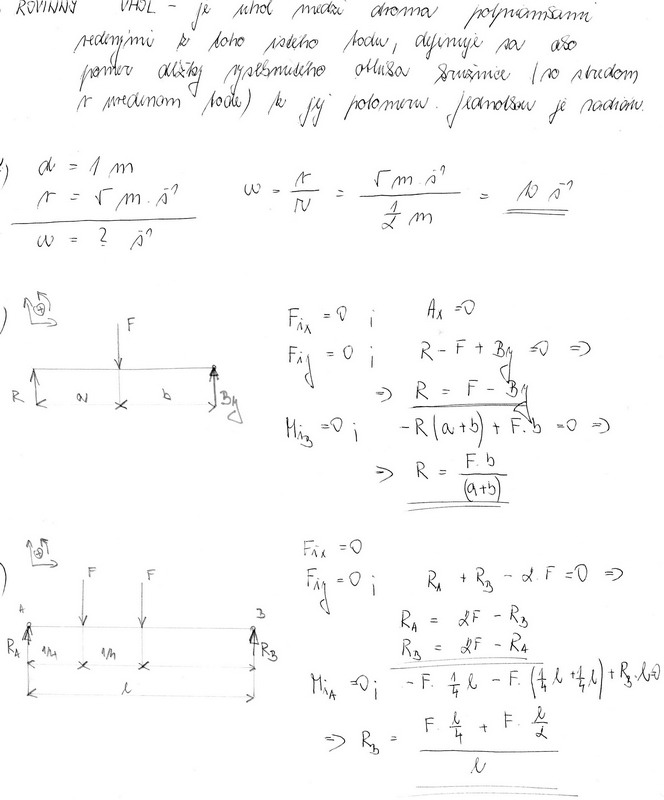 ROVINNÝ UHOL - je uhol medzi dvoma polpriamkami
vedenými k toho istého bodu, definuje sa ako
pomer dĺžky vyseknutého oblúka kružnice (so stredom
v uvedenom bode) k jej polomeru. Jednotkou je radian.
d = 1 m
v = 5 m . s⁻¹
ω = ? s⁻¹
ω = v/r = 5 m . s⁻¹ / ½ m = 10 s⁻¹
F
R a b By
Fix = 0 ; Ax = 0
Fiy = 0 ; R - F + By = 0 =>
=> R = F - By
MiB = 0 ; -R(a+b) + F.b = 0 =>
=> R = F.b / (a+b)
F F
A B
RA RB
l
Fix = 0
Fiy = 0 ; RA + RB - 2.F = 0 =>
RA = 2F - RB
RB = 2F - RA
MiA = 0 ; - F. ¼ l - F. (¼ l + ¼ l) + RB . l = 0
=> RB = F. l/4 + F. l/2 / l